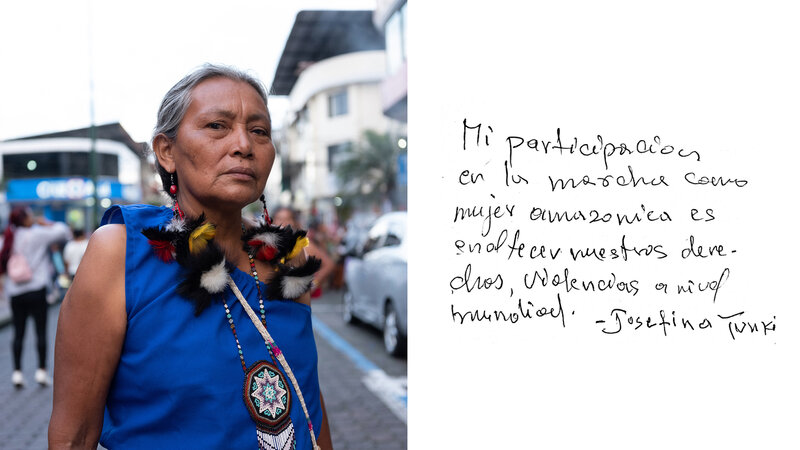 Mi participacion
en la marcha como
mujer amazonica es
enaltecer nuestros dere-
chos, violencias a nivel
mundial.
-Josefina Tunki